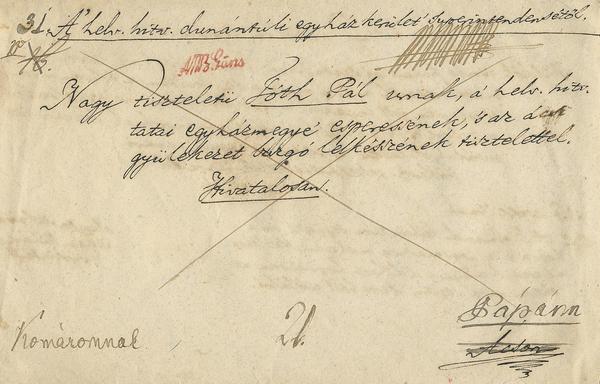 31. A' helv. hitv. dunántúli egyház kerület' Superintendensétől.
Nagy tiszteletű Tóth Pál urnak, a' helv. hitv.
tatai egyházmegye' esperessének, s az ácsi
gyülekezet buzgó lelkészének tisztelettel.
Hivatalosan.
Komáromnak
21.
Pápán
Acson